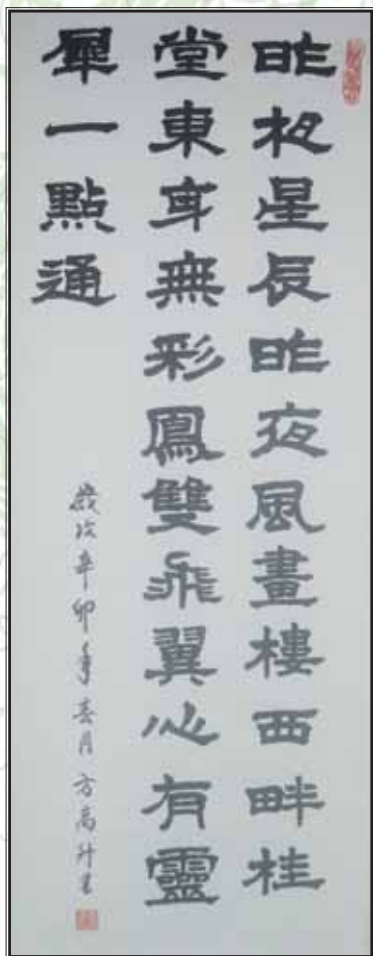 昨夜星辰昨夜風畫樓西畔桂
堂東身無彩鳳雙飛翼心有靈
犀一點通
歲次辛卯年春月方高升書